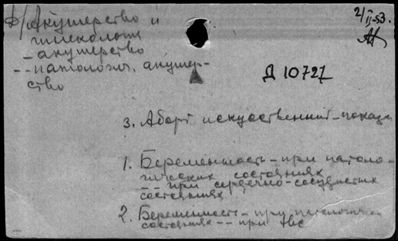 Акушерство и
гинекология
- акушерство
-- патология. акушер-
ство
2/II-53.
Д 10727
3. Аборт искусственный - показа
1. Беременность - при патоло-
гических состояниях
-- при сердечно-сосудистых
состояниях
2. Беременность - при патологич
состояниях -- при